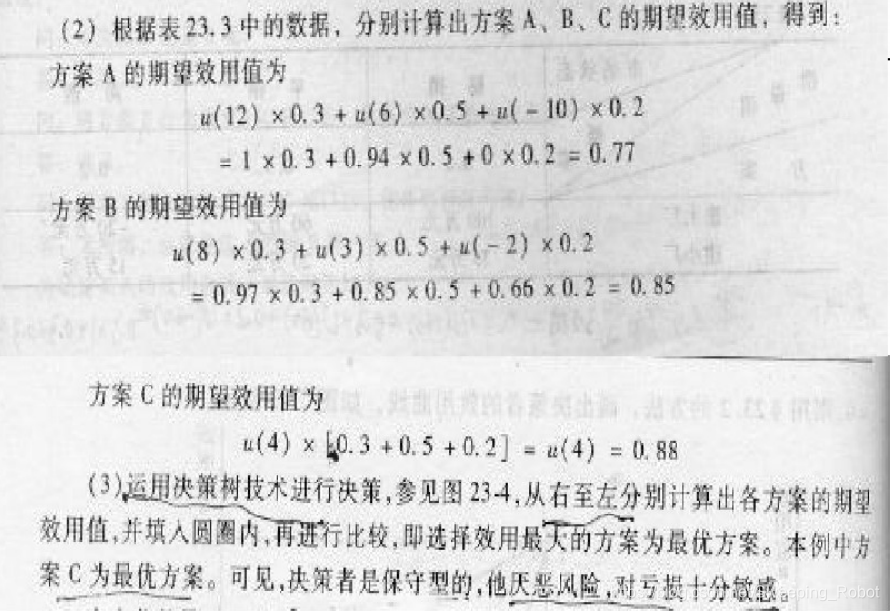 (2) 根据表23.3中的数据，分别计算出方案A、B、C的期望效用值，得到：
方案A的期望效用值为
u(12)×0.3+u(6)×0.5+u(-10)×0.2
=1×0.3+0.94×0.5+0×0.2=0.77
方案B的期望效用值为
u(8)×0.3+u(3)×0.5+u(-2)×0.2
=0.97×0.3+0.85×0.5+0.66×0.2=0.85
方案C的期望效用值为
u(4)×[0.3+0.5+0.2]=u(4)=0.88
(3)运用决策树技术进行决策,参见图23-4,从右至左分别计算出各方案的期望
效用值,并填入圆圈内,再进行比较,即选择效用最大的方案为最优方案。本例中方
案C为最优方案。可见,决策者是保守型的,他厌恶风险,对亏损十分敏感。